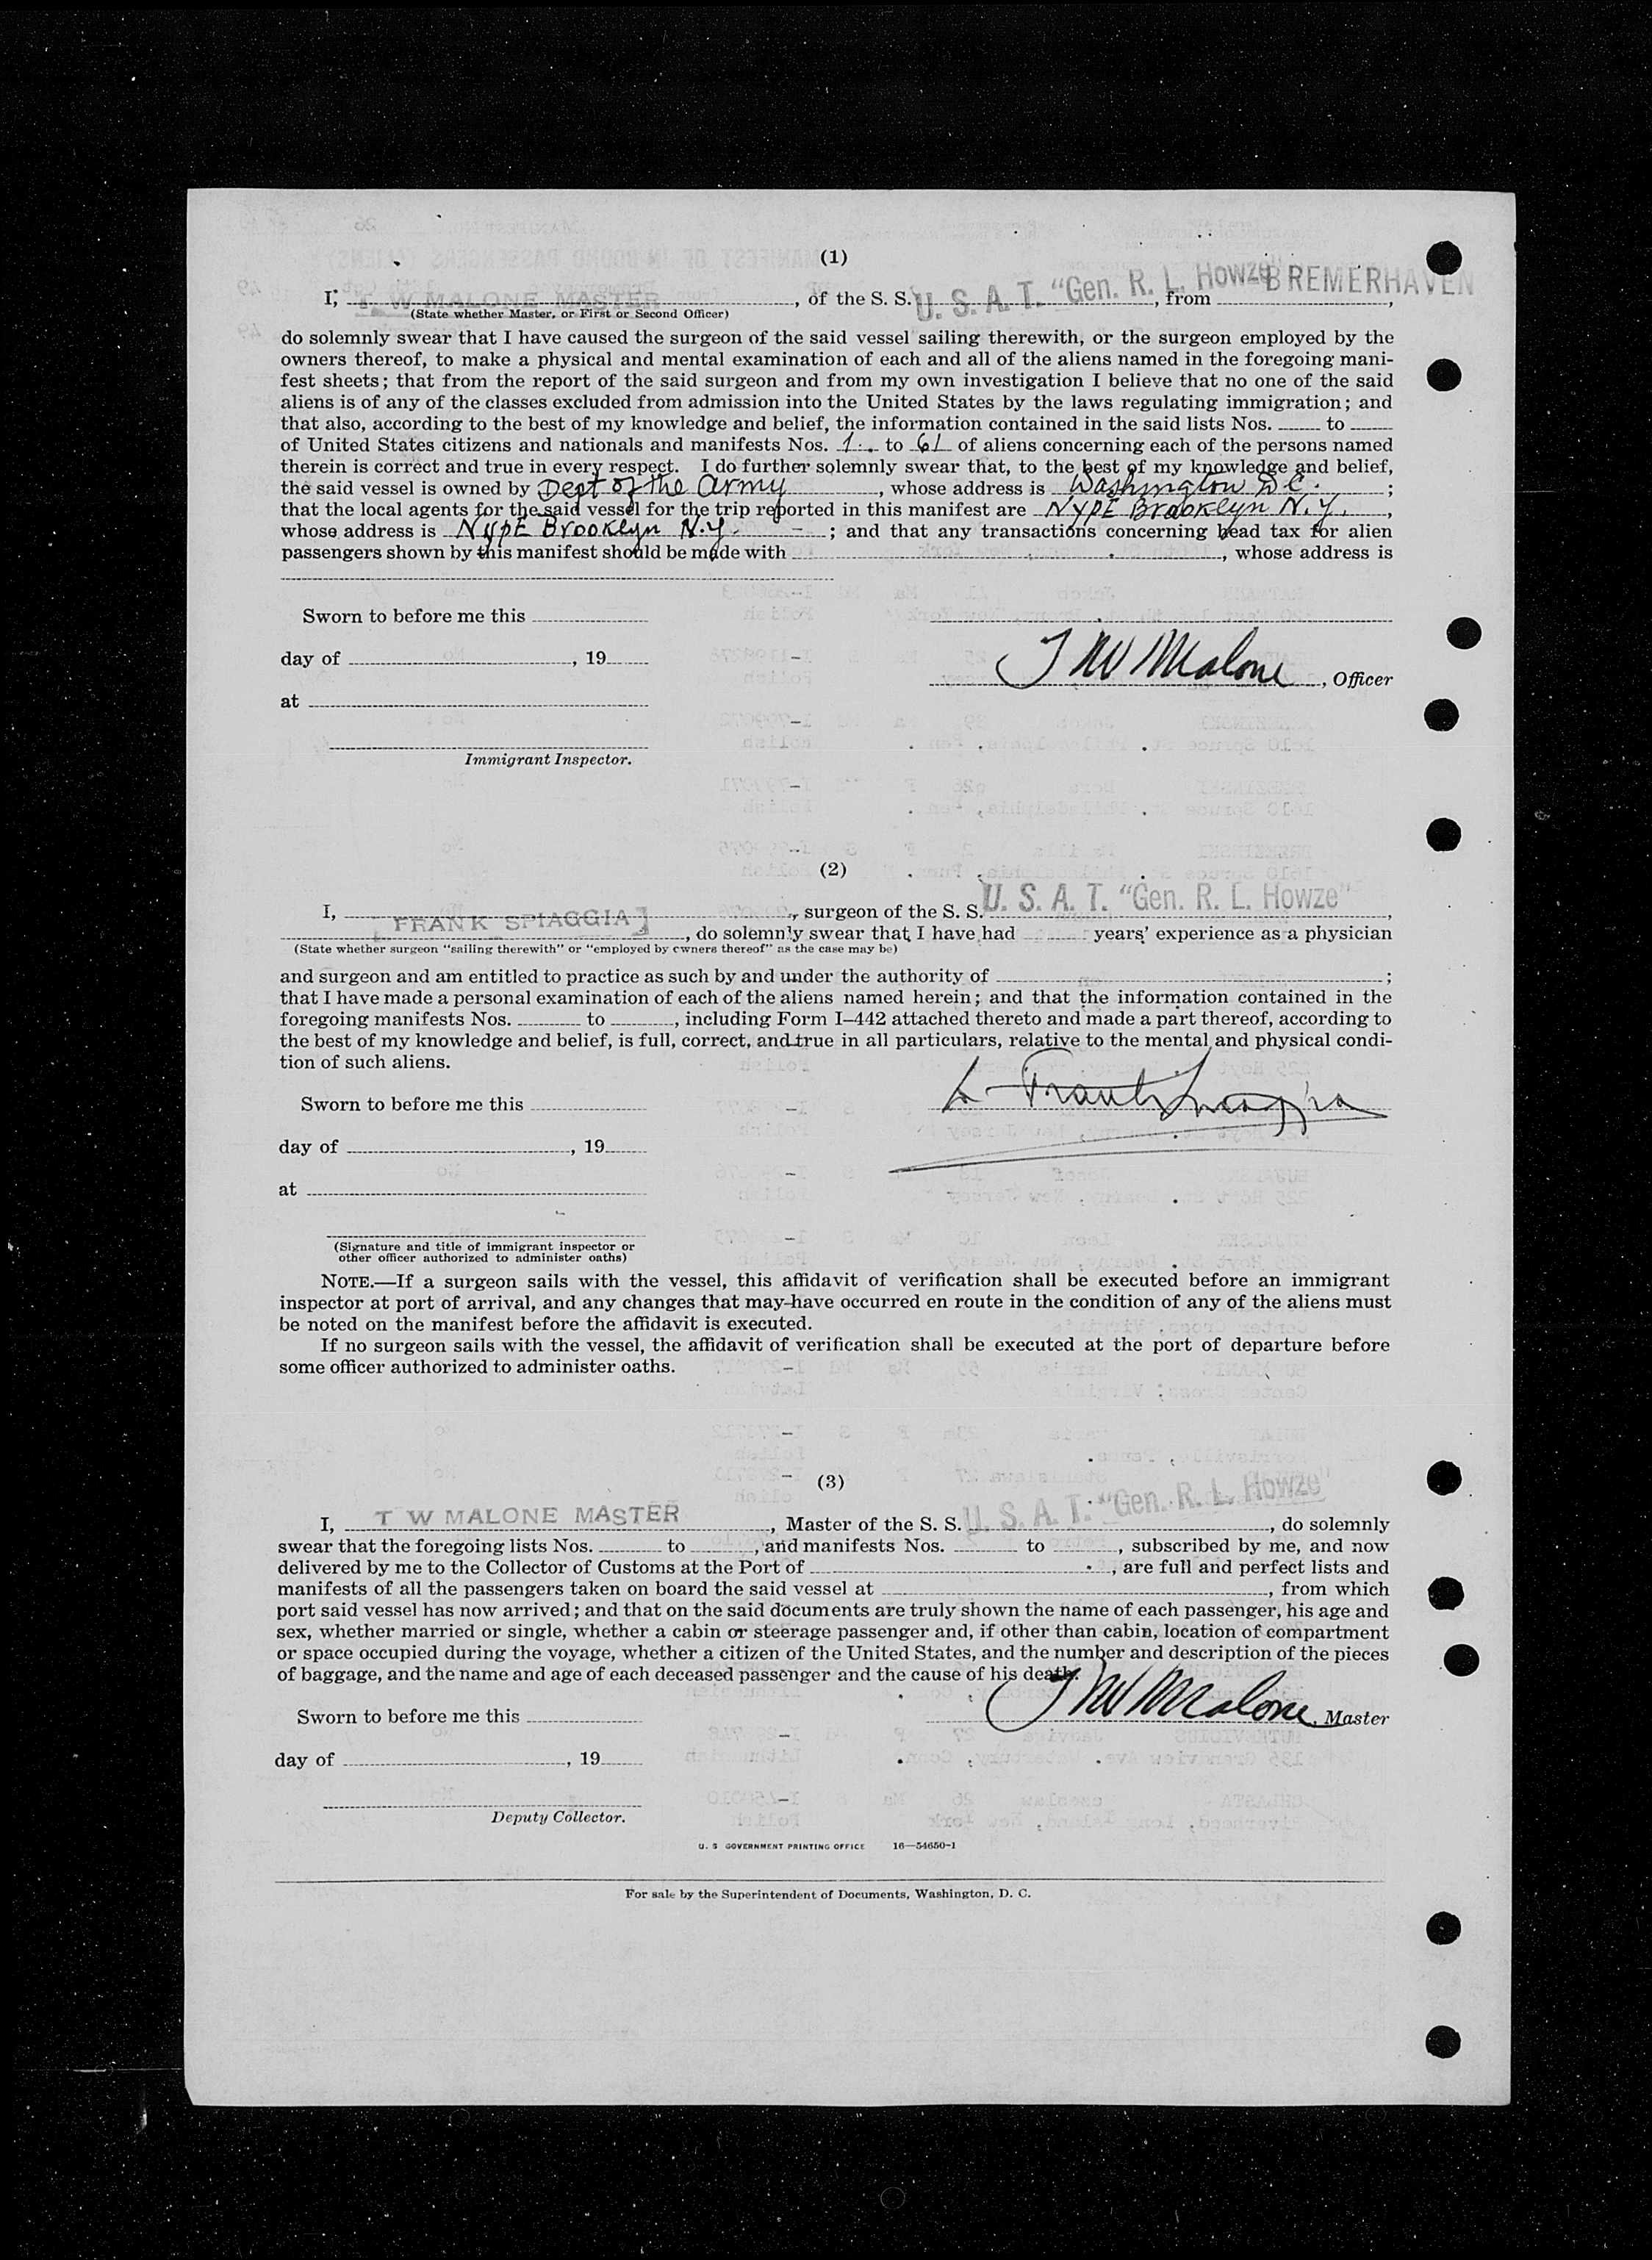 (1)
I, T. W MALONE MASTER, of the S. S. U. S. A. T. "Gen. R. L. Howze", from BREMERHAVEN,
(State whether Master, or First or Second Officer)
do solemnly swear that I have caused the surgeon of the said vessel sailing therewith, or the surgeon employed by the
owners thereof, to make a physical and mental examination of each and all of the aliens named in the foregoing mani-
fest sheets; that from the report of the said surgeon and from my own investigation I believe that no one of the said
aliens is of any of the classes excluded from admission into the United States by the laws regulating immigration; and
that also, according to the best of my knowledge and belief, the information contained in the said lists Nos. to
of United States citizens and nationals and manifests Nos. 1. to 61 of aliens concerning each of the persons named
therein is correct and true in every respect. I do further solemnly swear that, to the best of my knowledge and belief,
the said vessel is owned by Dept of the Army, whose address is Washington D.C.;
that the local agents for the said vessel for the trip reported in this manifest are NYPE Brooklyn N.Y.,
whose address is NYPE Brooklyn N.Y. -; and that any transactions concerning head tax for alien
passengers shown by this manifest should be made with , whose address is
Sworn to before me this
day of , 19
T W Malone, Officer
at
Immigrant Inspector.
(2)
I, FRANK SPIAGGIA, surgeon of the S. S. U. S. A. T. "Gen. R. L. Howze",
, do solemnly swear that I have had years' experience as a physician
(State whether surgeon "sailing therewith" or "employed by owners thereof" as the case may be)
and surgeon and am entitled to practice as such by and under the authority of ;
that I have made a personal examination of each of the aliens named herein; and that the information contained in the
foregoing manifests Nos. to , including Form I-442 attached thereto and made a part thereof, according to
the best of my knowledge and belief, is full, correct, and true in all particulars, relative to the mental and physical condi-
tion of such aliens.
Sworn to before me this
Frank Spiaggia
day of , 19
at
(Signature and title of immigrant inspector or
other officer authorized to administer oaths)
NOTE.—If a surgeon sails with the vessel, this affidavit of verification shall be executed before an immigrant
inspector at port of arrival, and any changes that may have occurred en route in the condition of any of the aliens must
be noted on the manifest before the affidavit is executed.
If no surgeon sails with the vessel, the affidavit of verification shall be executed at the port of departure before
some officer authorized to administer oaths.
(3)
I, T W MALONE MASTER, Master of the S. S. U. S. A. T. "Gen. R. L. Howze", do solemnly
swear that the foregoing lists Nos. to , and manifests Nos. to , subscribed by me, and now
delivered by me to the Collector of Customs at the Port of , are full and perfect lists and
manifests of all the passengers taken on board the said vessel at , from which
port said vessel has now arrived; and that on the said documents are truly shown the name of each passenger, his age and
sex, whether married or single, whether a cabin or steerage passenger and, if other than cabin, location of compartment
or space occupied during the voyage, whether a citizen of the United States, and the number and description of the pieces
of baggage, and the name and age of each deceased passenger and the cause of his death.
Sworn to before me this
T W Malone, Master
day of , 19
Deputy Collector.
U. S GOVERNMENT PRINTING OFFICE 16—54650-1
For sale by the Superintendent of Documents, Washington, D. C.